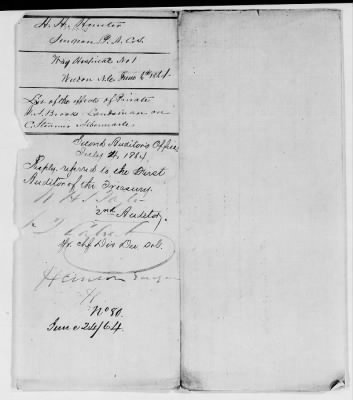 H. H. Hunter
Surgeon P. A. C. S.
Way Hospital No 1
Weldon N.C. June 1864.
List of the effects of Private
Brooks Landsman on
C. Steamer Albemarle
Second Auditor's Office
July 1864.
Respty. referred to the First
Auditor of the Treasury.
2nd Auditor
No 50.
June 24/64